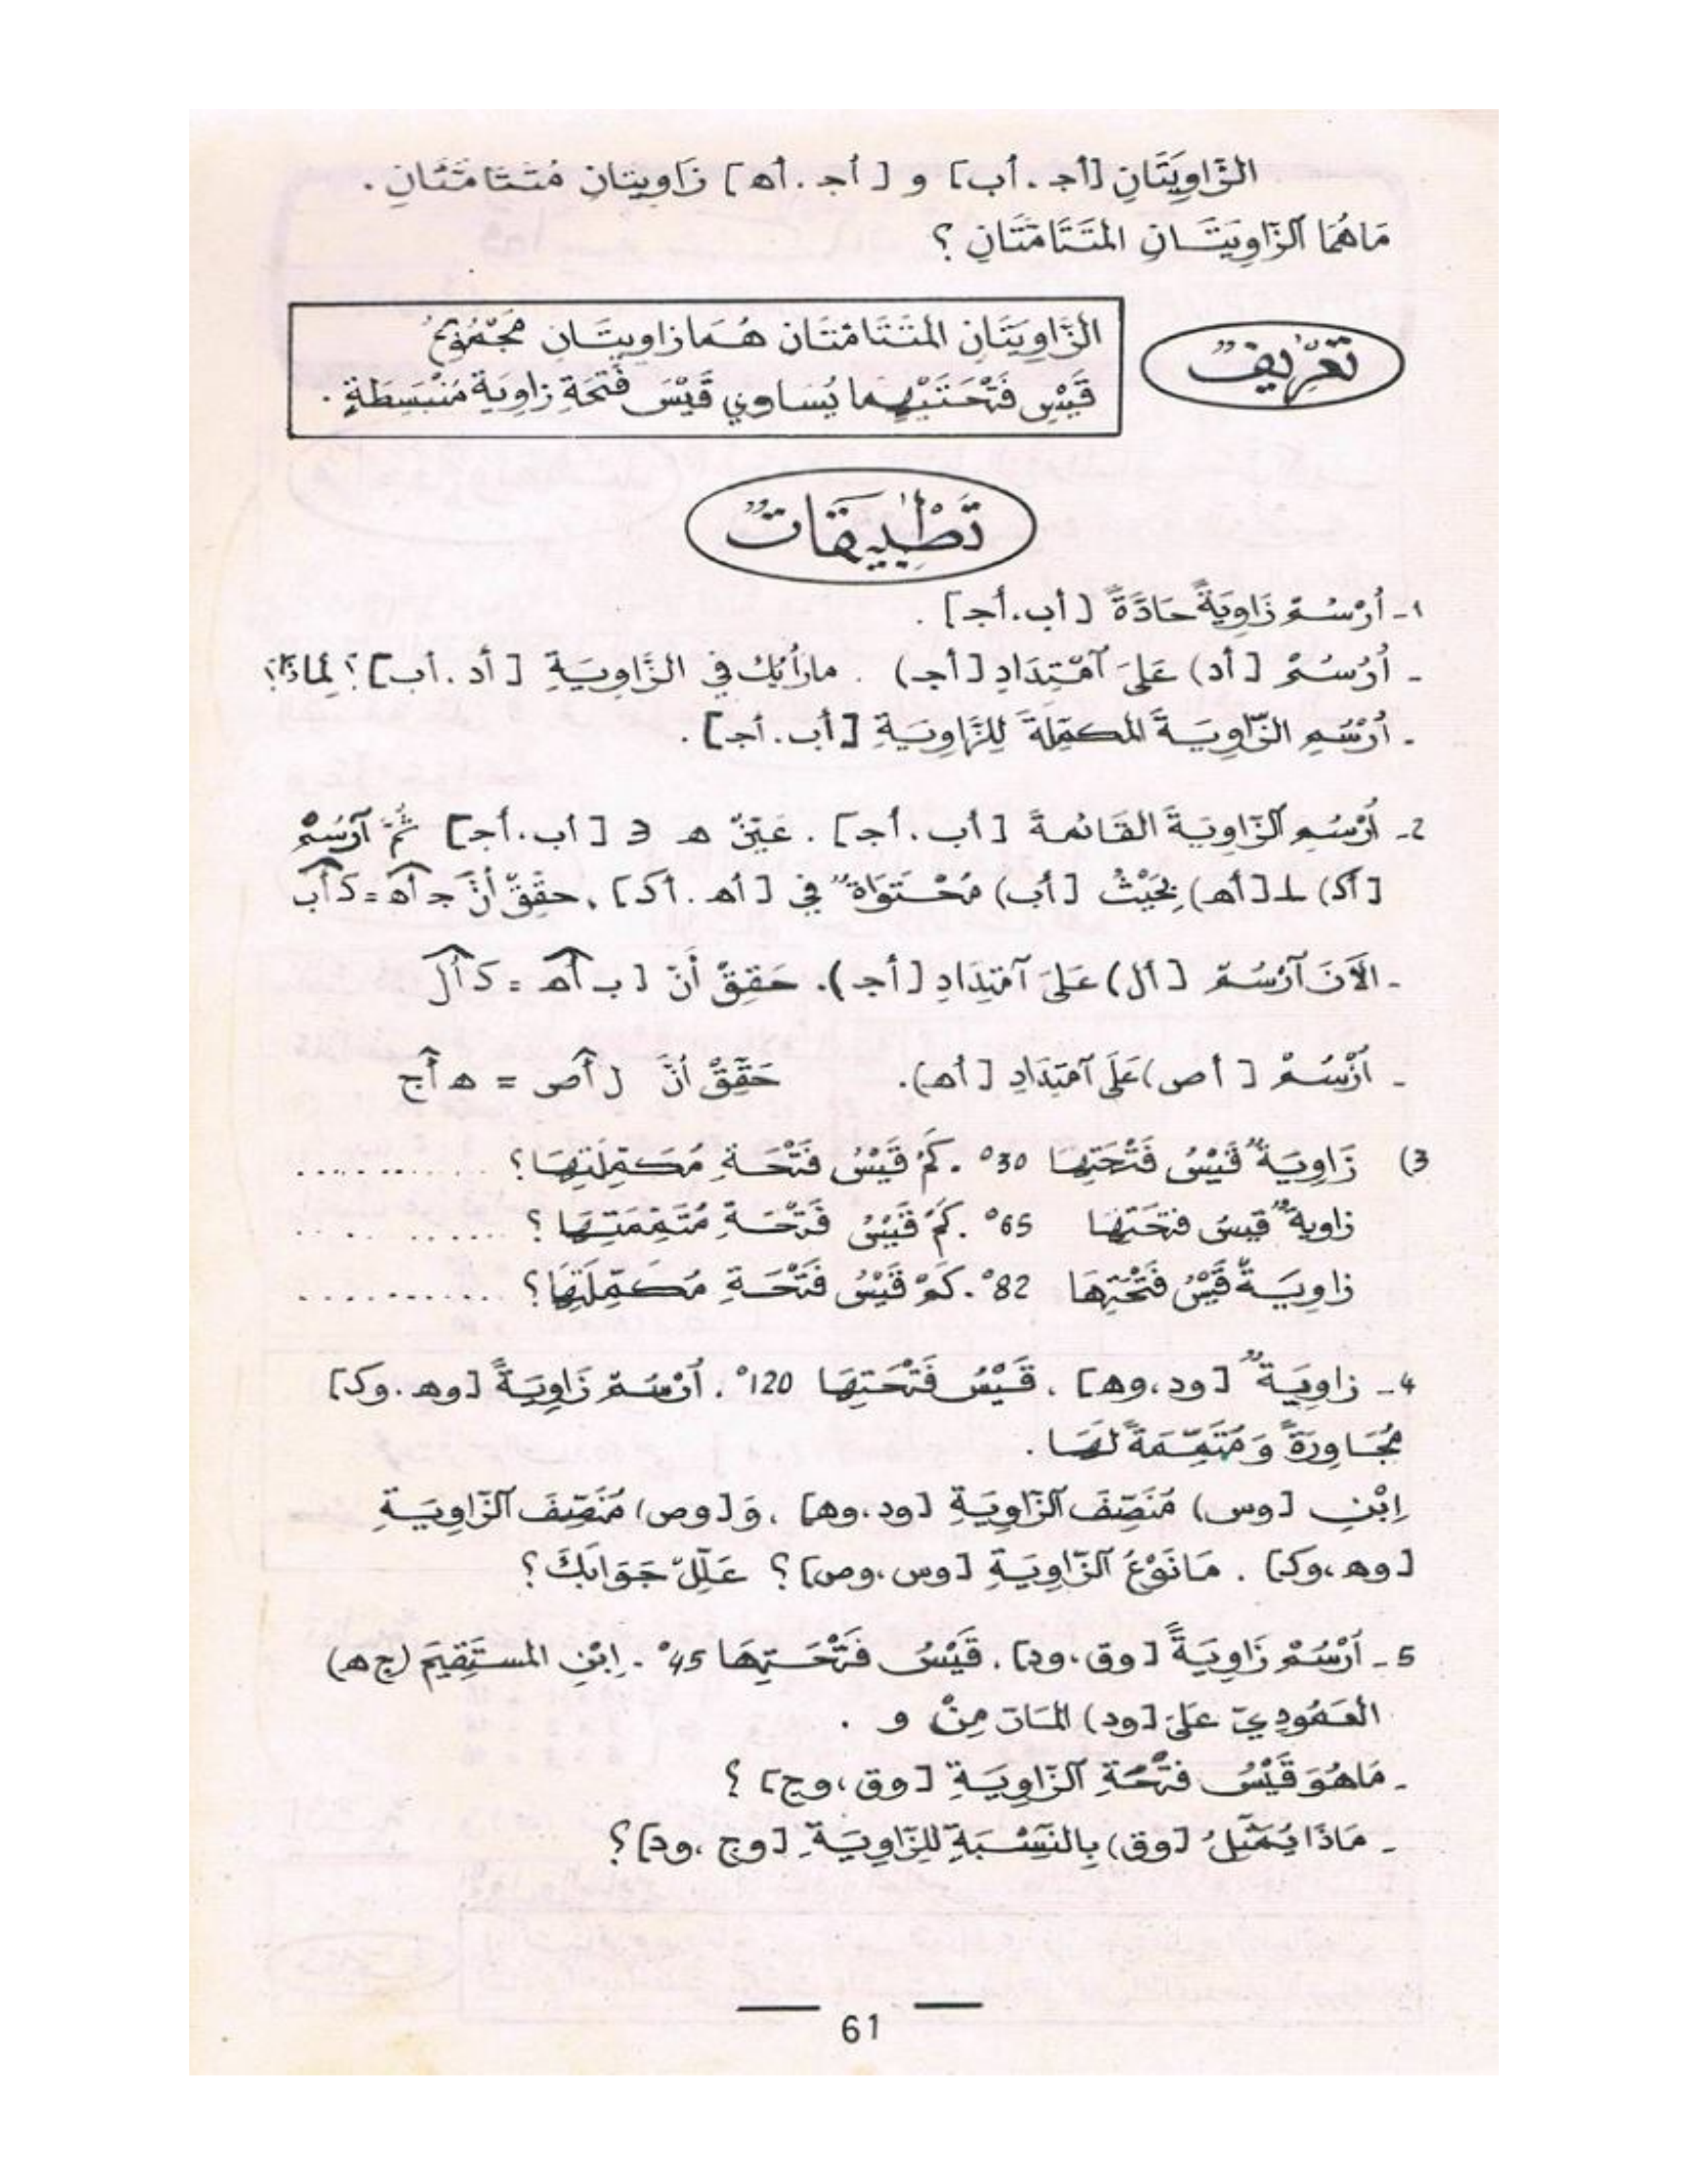 الزَّاوِيَتَانِ [أجـ . أب] و [أجـ . أهـ] زَاويتان مُتَتَامَتَانِ .
مَاهُمَا آلزّاوِيَتَـانِ المتَتَامَتَانِ ؟
تَعْرِيفٌ
الزَّاوِيَتَانِ المتَتَامَتَان هُـمَا زاويتَـانِ مَجْمُوعُ
قَيْسِ فَتْحَتَيْهِـما يُسَاوي قَيْسَ فَتْحَةِ زاوِيَة مُنْبَسِطَةٍ .
تَطْبِيقَاتٌ
1- أُرْسُـمْ زَاوِيَةً حَادَّةً [أب.أجـ] .
- اُرْسُـمْ [أد) عَلىَ آمْتِدَادِ [أجـ) . مارأيُك في الزَّاوِيَـةِ [أد .أب]؟ لِماذَا؟
- اُرْسُمِ الزّاوِيَـةَ المكمِّلَةَ لِلزَّاوِيَةِ [أب . أجـ] .
2- اُرْسُمِ آلزّاوِيَـةَ القَائمةَ [أب .أجـ] . عَيّنْ هـ ∈ [أب.أجـ] ثُمَّ آرْسُمْ
[أكـ) ⊥ [أهـ) بِحَيْثُ [أب) مُحْـتَوَاةٌ في [أهـ . أكـ] . حقّقْ أنَّ جـ أهـ = كـ أب
- الآنَ آرْسُـمْ [أل) عَلىَ آمْتِدَادِ [أجـ). حَقِقْ أَنّ [بـ أهـ = كـ أل
- اُرْسُـمْ [أص) عَلَى آمْتِدَادِ [أهـ). حَقِّقْ أنَّ ل أص = هـ أج
3) زَاوِيَـةٌ قَيْسُ فَتْحَتِهَا 30° . كَمْ قَيْسُ فَتْحَـةِ مُـكَمِّلَتِهَا؟ ...........
زاويةٌ قيسُ فتحَتِهَا 65° . كَمْ قَيْسُ فَتْحَـةِ مُتَمِّمَتِـهَا ؟ ...........
زاوِيَـةٌ قَيْسُ فَتْحَتِهَا 82° . كَمْ قَيْسُ فَتْحَـةِ مُـكَمِّلَتِهَا؟ ...........
4- زاوِيَـةٌ [ود،وهـ] . قَـيْسُ فَتْحَتِهَا 120° . اُرْسُـمْ زَاوِيَـةً [وهـ.وكـ]
مُجَـاوِرَةً وَ مُتَمِّـمَةً لـهَـا .
اِبْنِ [وس) مُنَصِّفَ آلزّاوِيَـةِ [ود،وهـ] ، وَ [وص) مُنَصِّفَ آلزّاوِيَـةِ
[وهـ،وكـ] . مَا نَوْعُ آلزّاوِيَـةِ [وس،وص]؟ عَـلِّلْ جَـوَابَكَ ؟
5- اُرْسُمْ زَاوِيَـةً [وق،ود] . قَيْسُ فَتْحَـتِهَا 45° . اِبْنِ المستَقِيمَ (ج هـ)
العَـمُودِيّ عَلىَ [ود) المَـارَ مِنْ و .
- مَاهُوَ قَيْسُ فتْحَةِ آلزّاوِيَـةِ [وق،وج] ؟
- مَاذَا يُمَثِّلُ [وق) بِالنِّسْـبَةِ لِلزّاوِيَـةِ [وج ،ود]؟
61